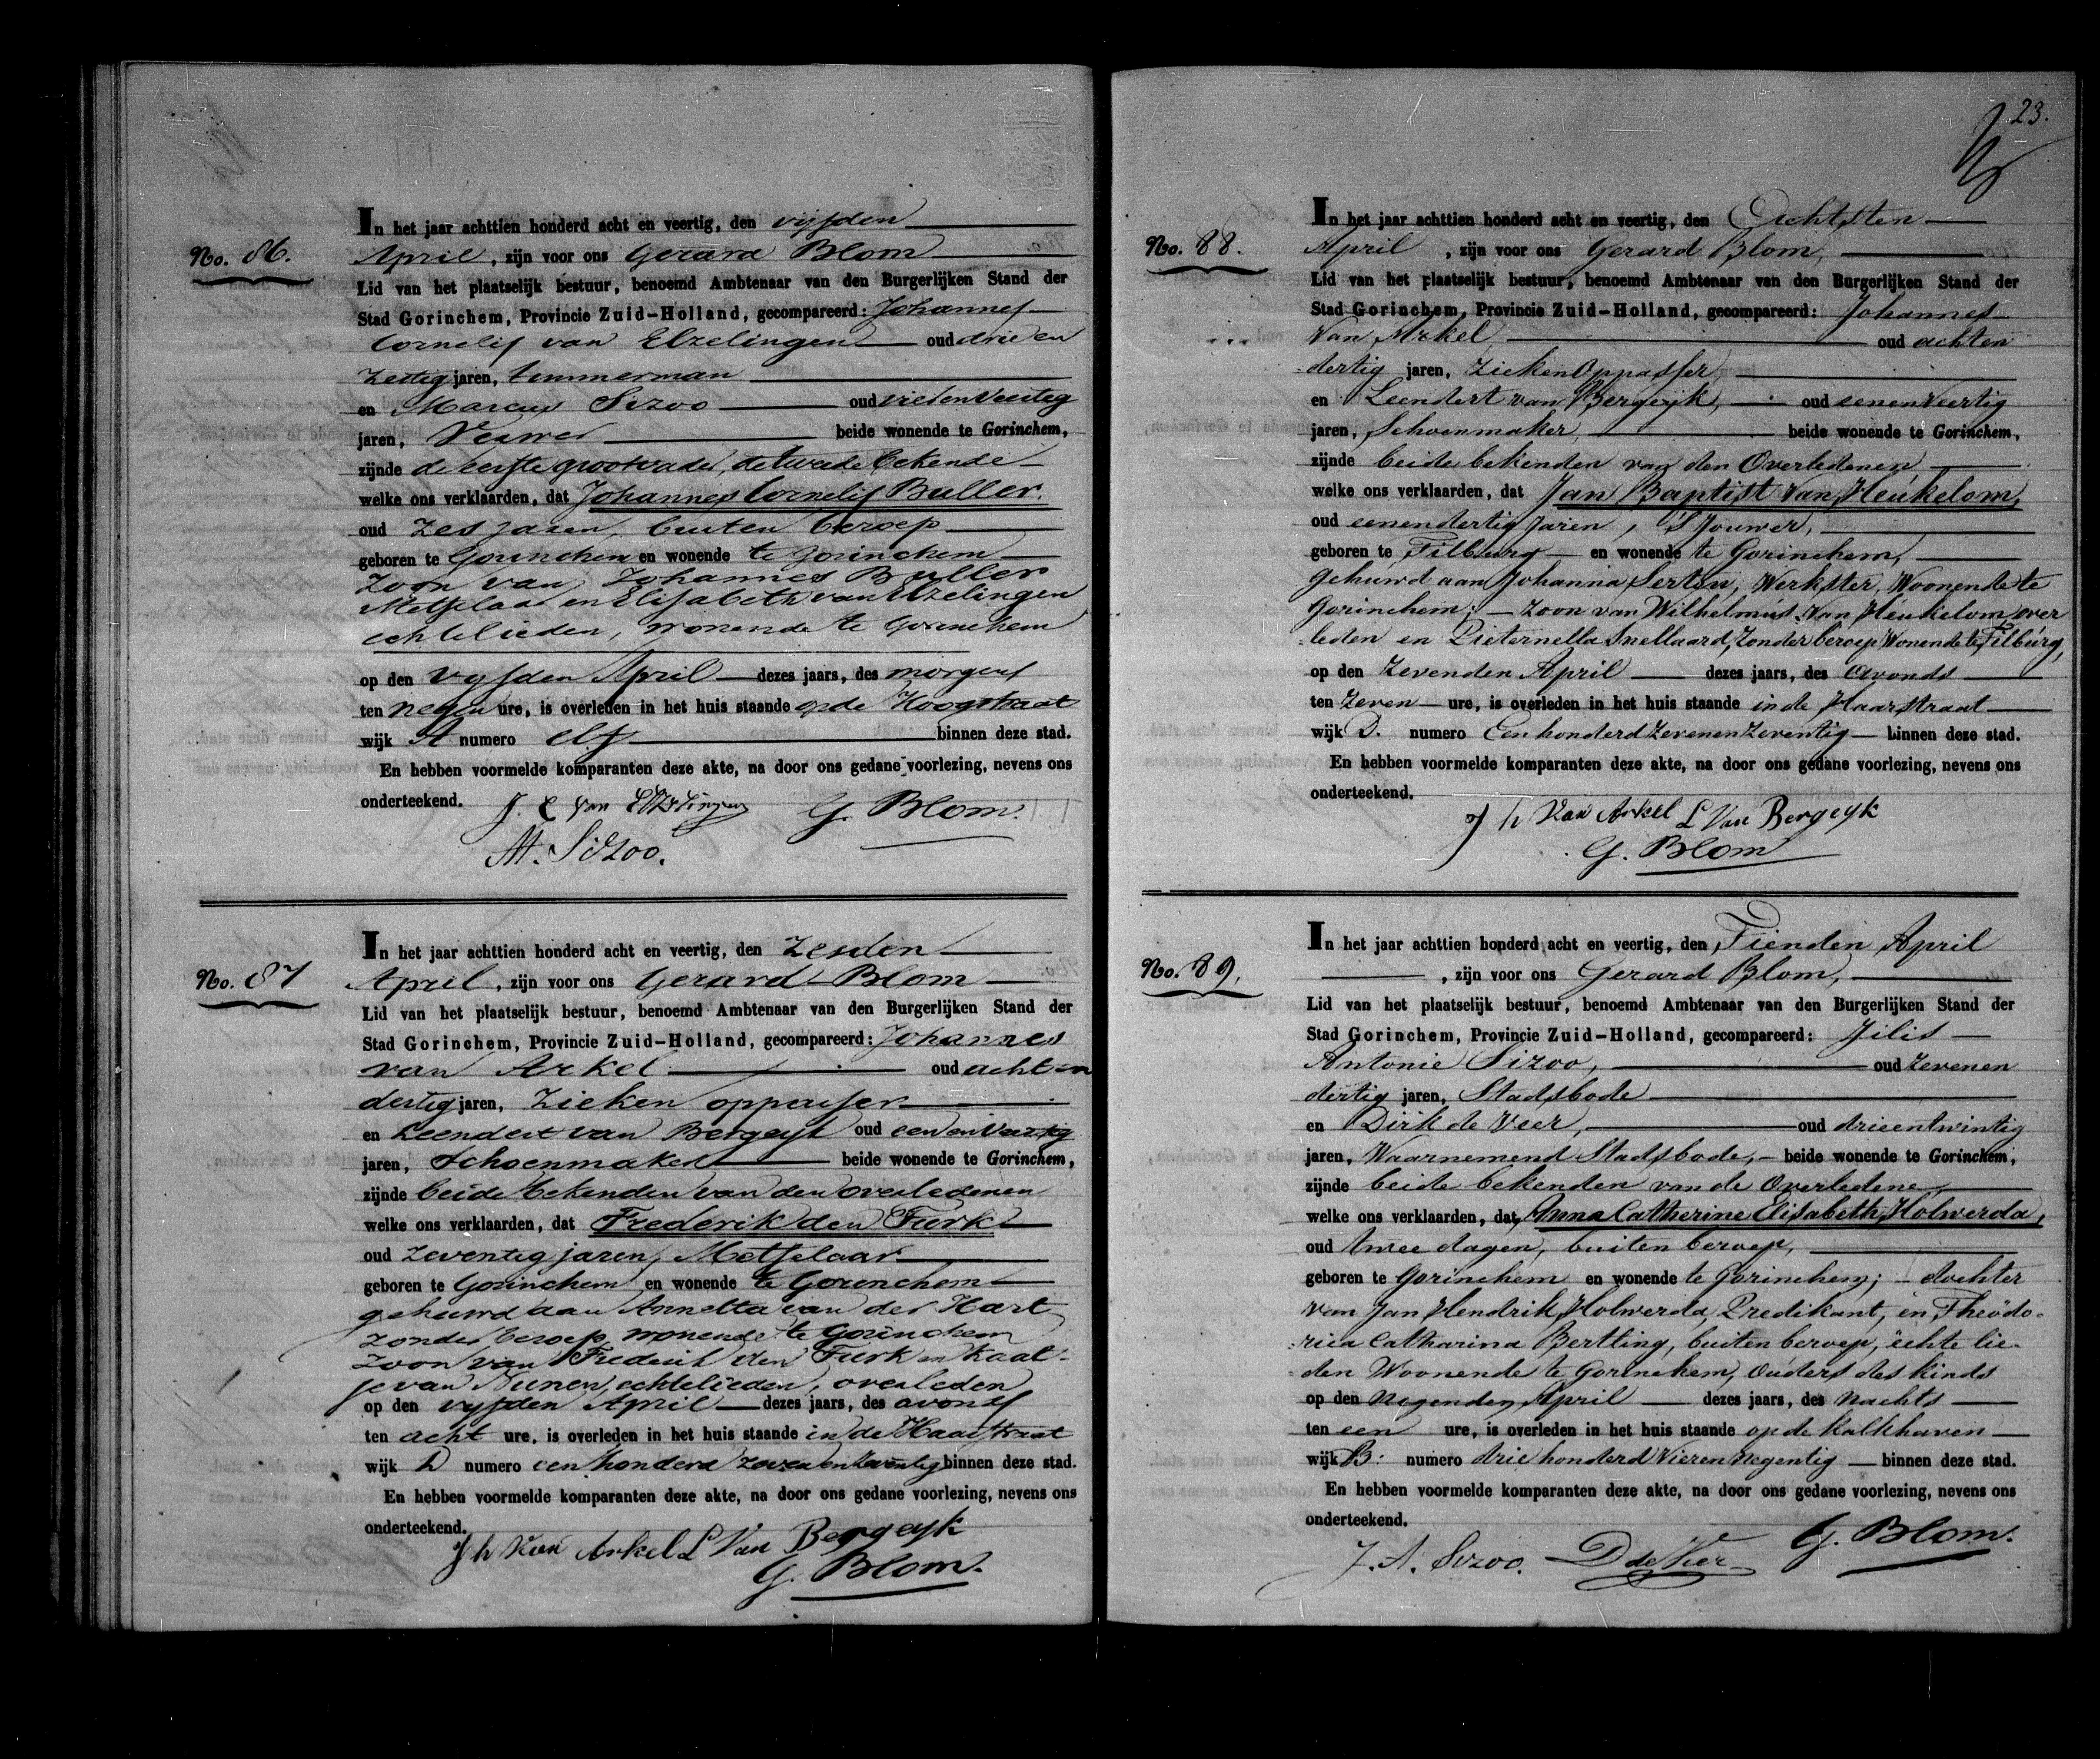 No. 86.
In het jaar achttien honderd acht en veertig, den vijfden
April, zijn voor ons Gerard Blom
Lid van het plaatselijk bestuur, benoemd Ambtenaar van den Burgerlijken Stand der
Stad Gorinchem, Provincie Zuid-Holland, gecompareerd: Johannes
Cornelis van Elzelingen oud drie en
zestig jaren, timmerman
en Marcus Sizoo oud vier en veertig
jaren, Verwer beide wonende te Gorinchem,
zijnde de eerste grootvader, de tweede bekende
welke ons verklaarden, dat Johannes Cornelis Buller.
oud zes jaren, buiten beroep
geboren te Gorinchem en wonende te Gorinchem
zoon van Johannes Buller
Metselaar en Elisabeth van Elzelingen
echtelieden, wonende te Gorinchem
op den vyfden April dezes jaars, des morgens
ten negen ure, is overleden in het huis staande op de Hoogstraat
wijk A numero elf binnen deze stad.
En hebben voormelde komparanten deze akte, na door ons gedane voorlezing, nevens ons
onderteekend. J. C van Elzelingen G. Blom.
M. Sizoo.
No. 87
In het jaar achttien honderd acht en veertig, den zesden
April, zijn voor ons Gerard Blom
Lid van het plaatselijk bestuur, benoemd Ambtenaar van den Burgerlijken Stand der
Stad Gorinchem, Provincie Zuid-Holland, gecompareerd: Johannes
van Arkel oud acht en
dertig jaren, Zieken oppasser
en Leendert van Bergeyk oud een en Veertig
jaren, Schoenmaker beide wonende te Gorinchem,
zijnde beide bekenden van den overledenen
welke ons verklaarden, dat Frederik den Turk
oud zeventig jaren, Metselaar
geboren te Gorinchem en wonende te Gorinchem
gehuwd aan Annetta van der Hart
zonder beroep, wonende te Gorinchem
zoon van Frederik den Turk en Kaat-
je van Nunen, echtelieden, overleden
op den vyfden April dezes jaars, des avonds
ten acht ure, is overleden in het huis staande in de Haarstraat
wijk D numero een honderd zeven en zeventig binnen deze stad.
En hebben voormelde komparanten deze akte, na door ons gedane voorlezing, nevens ons
onderteekend.
J h Van Arkel L Van Bergeyk
G. Blom.
23.
No. 88.
In het jaar achttien honderd acht en veertig, den Achtsten
April, zijn voor ons Gerard Blom,
Lid van het plaatselijk bestuur, benoemd Ambtenaar van den Burgerlijken Stand der
Stad Gorinchem, Provincie Zuid-Holland, gecompareerd: Johannes
Van Arkel oud achten
dertig jaren, ZiekenOppasser,
en Leendert van Bergeyk, oud eenenVeertig
jaren, Schoenmaker, beide wonende te Gorinchem,
zijnde beide bekenden van den Overledenen
welke ons verklaarden, dat Jan Baptist Van Heukelom,
oud eenendertig Jaren, Sjouwer,
geboren te Tilburg en wonende te Gorinchem,
Gehuwd aan Johanna Serton, Werkster, Woonende te
Gorinchem; - zoon van Wilhelmus Van Heukelom, over
leden en Pieternella Snellaard, Zonder beroep, Wonende te Tilburg,
op den Zevenden April dezes jaars, des Avonds
ten Zeven ure, is overleden in het huis staande in de Haarstraat
wijk D. numero Een honderd zevenenzeventig binnen deze stad.
En hebben voormelde komparanten deze akte, na door ons gedane voorlezing, nevens ons
onderteekend.
J h Van Arkel L Van Bergeyk
G. Blom
No. 89.
In het jaar achttien honderd acht en veertig, den Tienden April
, zijn voor ons Gerard Blom,
Lid van het plaatselijk bestuur, benoemd Ambtenaar van den Burgerlijken Stand der
Stad Gorinchem, Provincie Zuid-Holland, gecompareerd: Jilis
Antonie Sizoo, oud zevenen
dertig jaren, Stadsbode
en Dirk de Veer, oud drieentwintig
jaren, Waarnemend Stadsbode, beide wonende te Gorinchem,
zijnde beide bekenden van de Overledene
welke ons verklaarden, dat Anna Catherine Elisabeth Holwerda,
oud twee dagen, buiten beroep,
geboren te Gorinchem en wonende te Gorinchem; dochter
van Jan Hendrik Holwerda, Predikant, en Theodo-
rica Catharina Bertling, buiten beroep, echte lie-
den Woonende te Gorinchem, Ouders des kinds
op den Negenden April dezes jaars, des Nachts
ten een ure, is overleden in het huis staande op de Kalkhaven
wijk B: numero driehonderd Vieren Negentig binnen deze stad.
En hebben voormelde komparanten deze akte, na door ons gedane voorlezing, nevens ons
onderteekend.
J. A. Sizoo. D de Veer G. Blom.